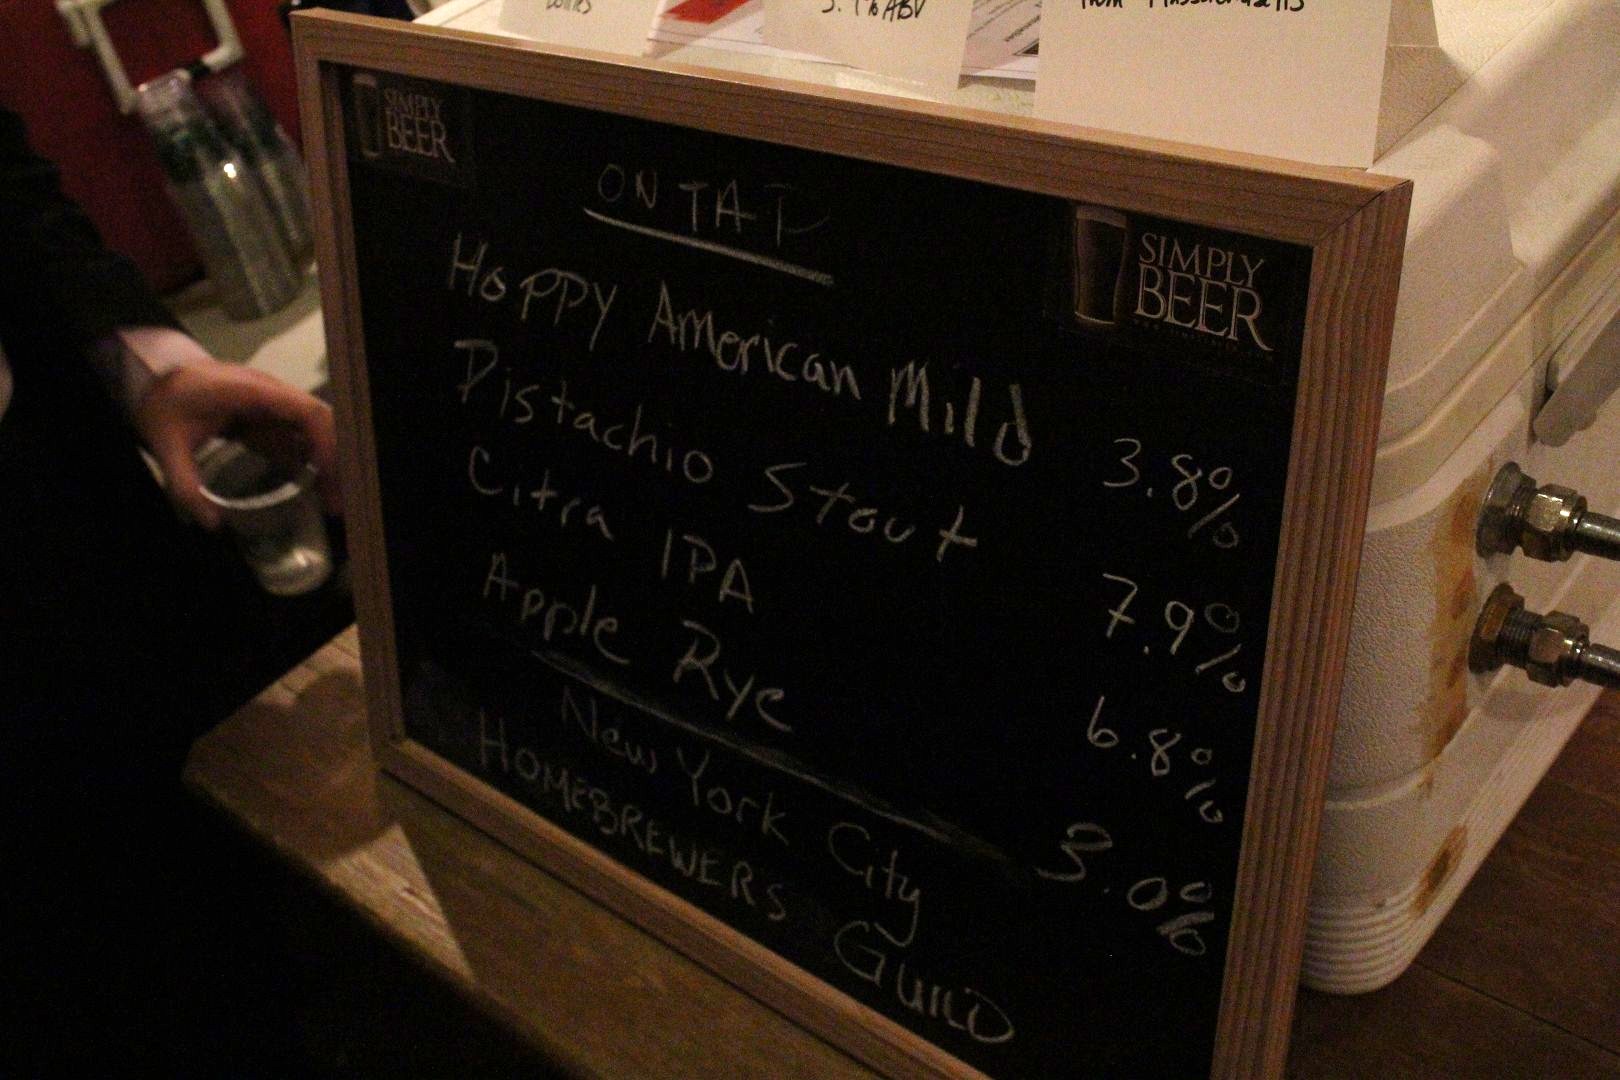 5.1% ABV
from Massachusetts
SIMPLY
BEER
ON TAP
SIMPLY
BEER
Hoppy American Mild 3.8%
Pistachio Stout 7.9%
Citra IPA 6.8%
Apple Rye 3.0%
New York City
HOMEBREWERS GUILD